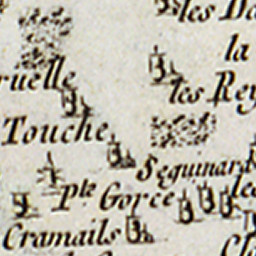 les
la
ruelle
les Rey
Touche
Seguinar
Pte Gorce
les
Cramails